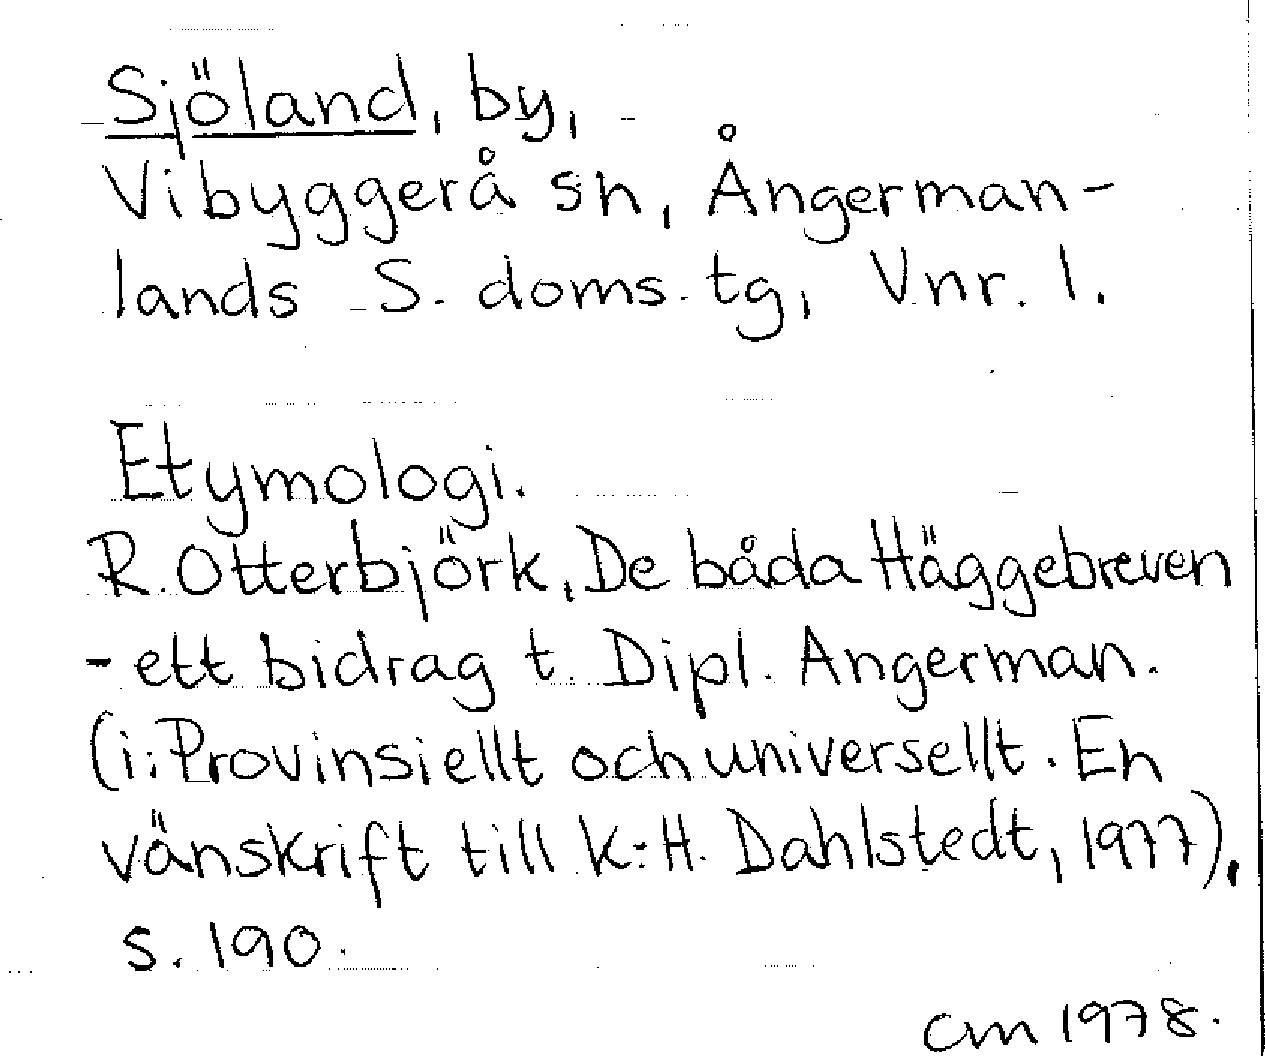 Sjöland, by,
Vibyggerå sn, Ångerman-
lands S. doms. tg, Vnr. 1.
Etymologi.
R. Otterbjörk, De båda Häggebreven
- ett bidrag t. Dipl. Angerman.
(i: Provinsiellt och universellt. En
vänskrift till K.-H. Dahlstedt, 1977),
s. 190.
CM 1978.